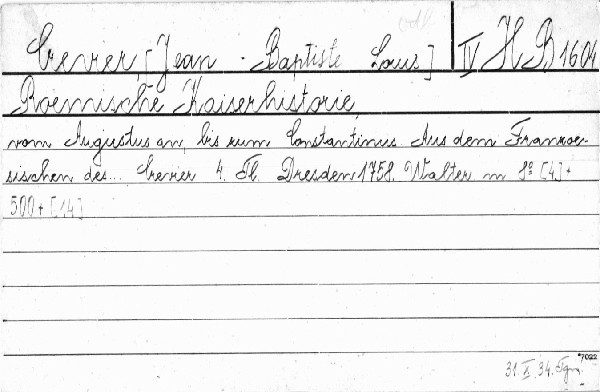 Crevier, [Jean - Baptiste Louis] IV H B 1604
Roemische Kaiserhistorie,
vom Augustus an, bis zum Constantinus. Aus dem Franzoe-
sischen des... Crevier 4. Th. Dresden 1758. Walter in 8º [4] +
500 + [14]
*7022
31. X. 34.